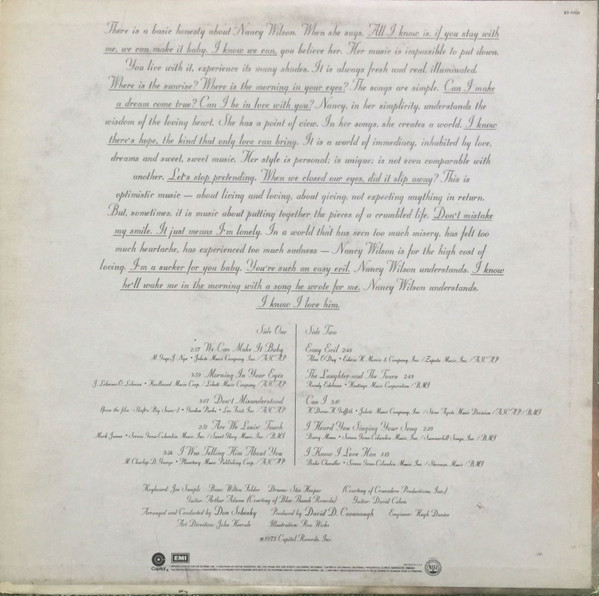 There is a basic honesty about Nancy Wilson. When she says, All I know is, if you stay with
me, we can make it baby. I know we can, you believe her. Her music is impossible to put down.
You live with it, experience its many shades. It is always fresh and real, illuminated.
Where is the sunrise? Where is the morning in your eyes? The songs are simple. Can I make
a dream come true? Can I be in love with you? Nancy, in her simplicity, understands the
wisdom of the loving heart. She has a point of view. In her songs, she creates a world. I know
there's hope, the kind that only love can bring. It is a world of immediacy, inhabited by love,
dreams and sweet, sweet music. Her style is personal; is unique; is not even comparable with
another. Let's stop pretending. When we closed our eyes, did it slip away? This is
optimistic music — about living and loving, about giving, not expecting anything in return.
But, sometimes, it is music about putting together the pieces of a crumbled life. Don't mistake
my smile. It just means I'm lonely. In a world that has seen too much misery, has felt too
much heartache, has experienced too much sadness — Nancy Wilson is for the high cost of
loving. I'm a sucker for you baby. You're such an easy evil. Nancy Wilson understands. I know
he'll wake me in the morning with a song he wrote for me. Nancy Wilson understands.
I know I love him.
Side One
2:57 We Can Make It Baby
Jobete Music Company, Inc. / ASCAP
3:39 Morning In Your Eyes
3:07 Don't Misunderstand
(from the film - Shafts Big Score) - Gordon Parks
2:51 Are We Losin' Touch
Mark James - Screen Gems-Columbia Music, Inc. / Sweet Glory Music, Inc. / BMI
3:26 I Was Telling Him About You
M. Charlap-D. George - Planetary Music Publishing Corp. / ASCAP
Side Two
Easy Evil
Alan O'Day - Edwin H. Morris & Company Inc. / Zapata Music, Inc. / ASCAP
The Laughter and The Tears
Randy Edelman - Hastings Music Corporation / BMI
Can I
I Heard You Singing Your Song
Barry Mann - Screen Gems-Columbia Music, Inc. / Summerhill Songs, Inc. / BMI
I Know I Love Him
Screen Gems-Columbia Music, Inc.
Keyboard: Joe Sample Bass: Wilton Felder Drums: Stix Hooper (Courtesy of Crusaders Productions, Inc.)
Guitar: Arthur Adams (Courtesy of Blue Thumb Records) Guitar: David Cohen
Arranged and Conducted by Don Sebesky Produced by David D. Cavanaugh Engineer: Hugh Davies
Art Direction: John Hoernle Illustration:
©1973 Capitol Records, Inc.
Capitol
EMI